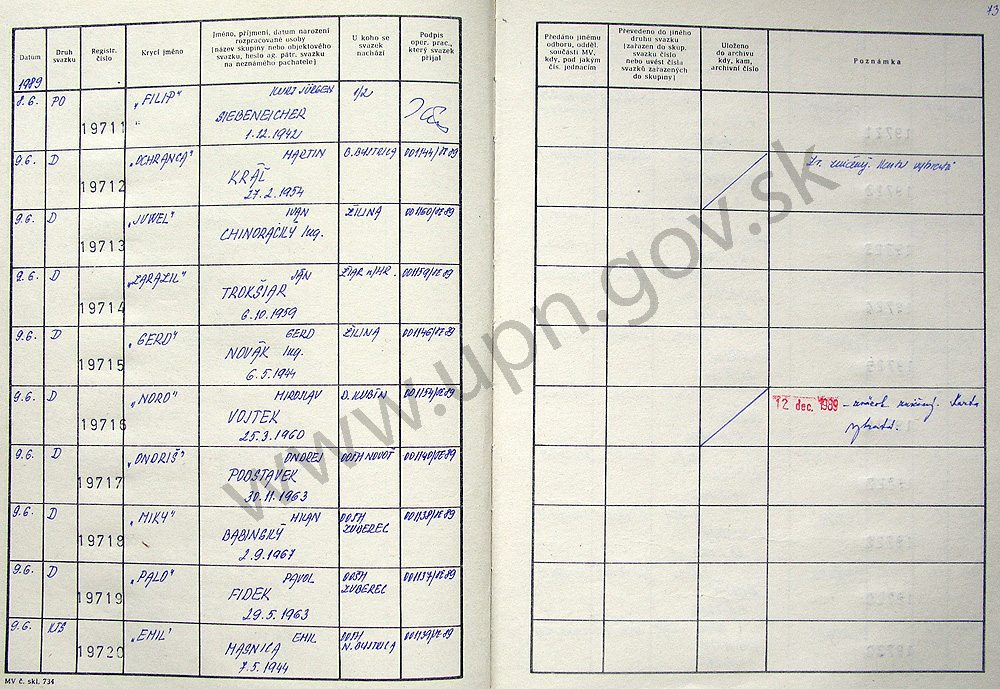 13
Datum
Druh svazku
Registr. číslo
Krycí jméno
Jméno, příjmení, datum narození
rozpracované osoby
[název skupiny nebo objektového
svazku, heslo ag. pátr. svazku
na neznámého pachatele]
U koho se
svazek
nachází
Podpis
oper. prac.,
který svazek
přijal
Předáno jinému
odboru, odděl.
součásti MV,
kdy, pod jakým
čís. jednacím
Převedeno do jiného
druhu svazku
[zařazen do skup.
svazku číslo
nebo uvést čísla
svazků zařazených
do skupiny]
Uloženo
do archivu
kdy, kam,
archivní číslo
Poznámka
1989
8.6. PO 19711 "FILIP" KURT JÜRGEN
SIEBENEICHER
1.12.1942
1/2
9.6. D 19712 "OCHRANCA" MARTIN
KRÁĽ
27.2.1954
B.BYSTRICA 00144/OE-89
zničený. Karta vybratá
9.6. D 19713 "JUWEL" IVAN
CHINORACKÝ Ing.
ŽILINA 00160/OE-89
9.6. D 19714 "ZARAZIL" JÁN
TROKŠIAR
6.10.1959
ŽIAR n/HR. 00159/OE-89
9.6. D 19715 "GERD" GERD
NOVÁK Ing.
6.5.1944
ŽILINA 00146/OE-89
9.6. D 19716 "NORO" MIROSLAV
VOJTEK
25.3.1960
D. KUBÍN 00154/OE-89
12. dec. 1989 - zväzok zničený. Karta
vybratá.
9.6. D 19717 "ONDRIŠ" ONDREJ
PODSTAVEK
30.11.1963
OOSH NOVOŤ 00140/OE-89
9.6. D 19718 "MIKY" MILAN
BABINSKÝ
2.9.1967
OOSH
ZUBEREC
00138/OE-89
9.6. D 19719 "PALO" PAVOL
FIDEK
29.5.1963
OOSH
ZUBEREC
00137/OE-89
9.6. KTS 19720 "EMIL" EMIL
MASNICA
7.5.1944
OOSH
N.BYSTRICA
00139/OE-89
MV č. skl. 734
www.upn.gov.sk